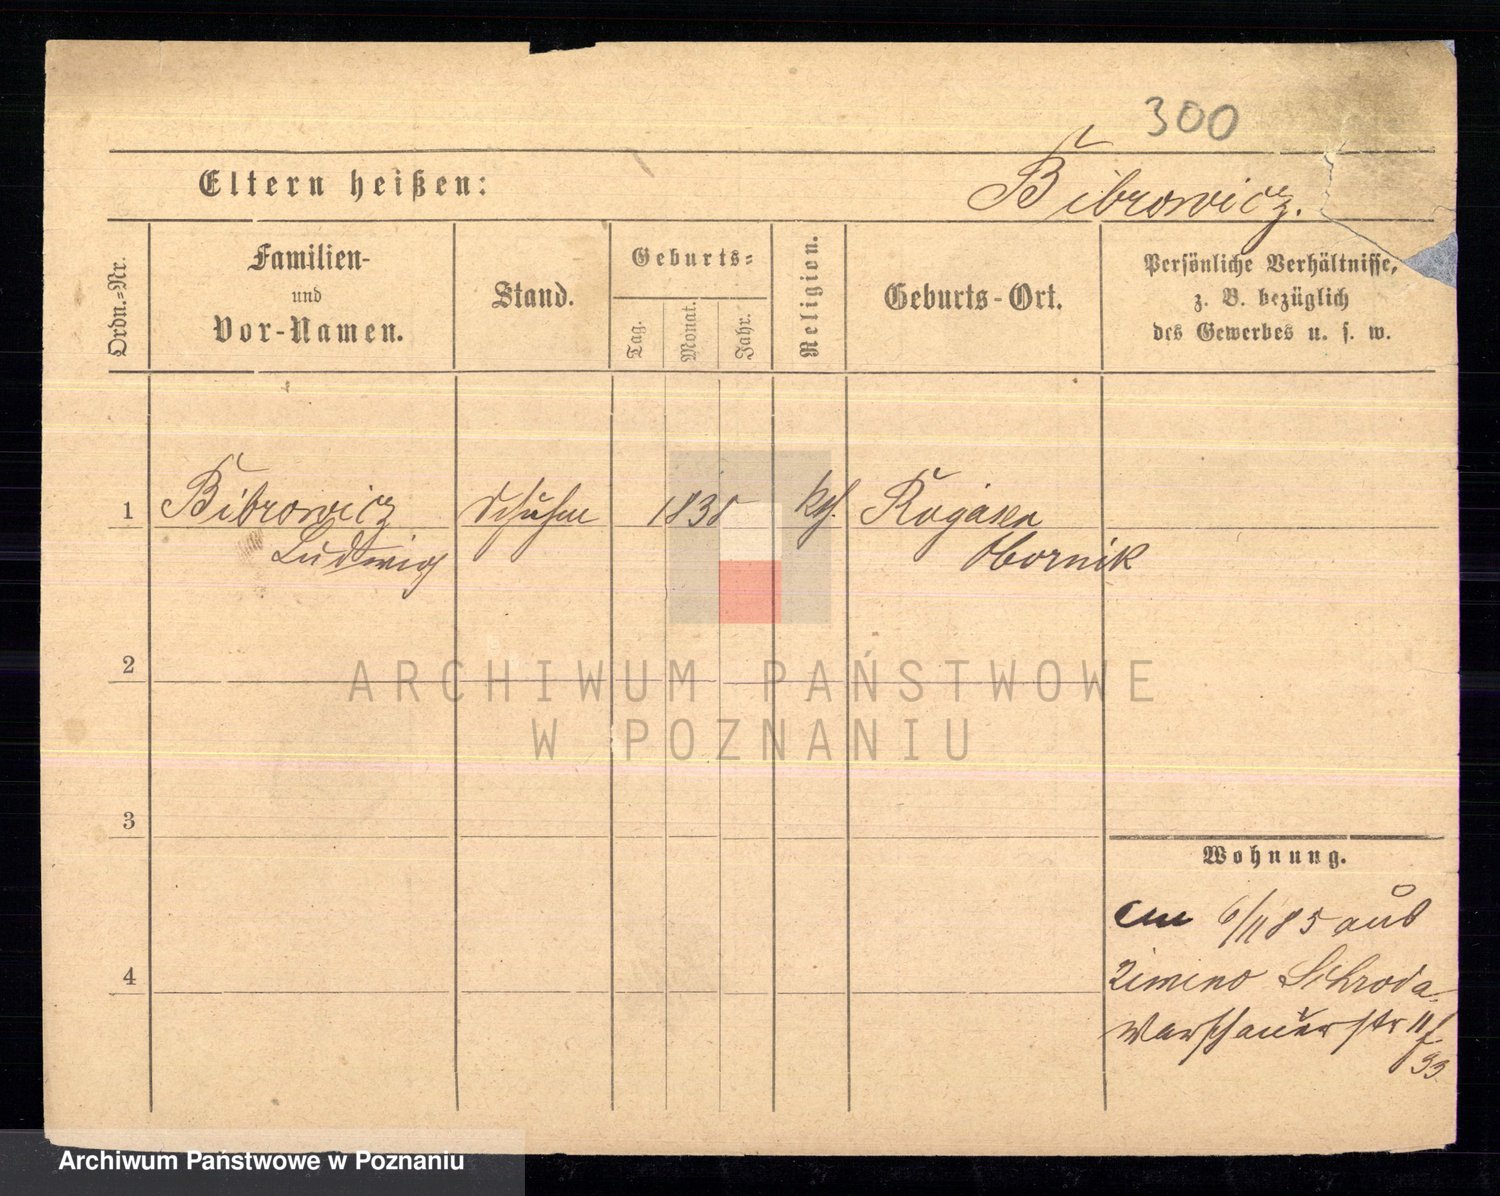 300
Eltern heißen:
Bibrowicz.
Ordn.=Nr.
Familien-
und
Vor-Namen.
Stand.
Geburts=
Tag.
Monat.
Jahr.
Religion.
Geburts-Ort.
Persönliche Verhältnisse,
z. B. bezüglich
des Gewerbes u. s. w.
1 Bibrowicz Schuhm 1838 kth. Rogasen
Ludwig Obornik
2
ARCHIWUM PAŃSTWOWE
W POZNANIU
3
Wohnung.
6/11 85 aus
4 Zimino Schroda
Warschauerstr 11/
33
Archiwum Państwowe w Poznaniu